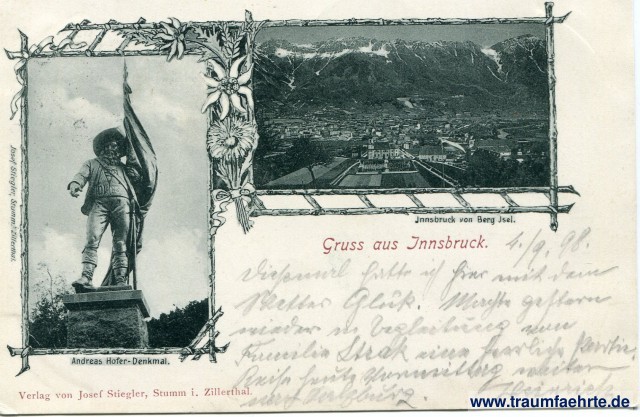 Josef Stiegler, Stumm, Zillertal.
Andreas Hofer-Denkmal.
Innsbruck von Berg Isel.
Gruss aus Innsbruck.
4./9. 98.
Diesmal hatte ich hier mit dem
Wetter Glück. Machte gestern
wieder in Begleitung von
Familie Strak eine herrliche Partie
Reise heute Vormittag weiter
nach Salzburg.
Heinrich
Verlag von Josef Stiegler, Stumm i. Zillerthal.
www.traumfaehrte.de